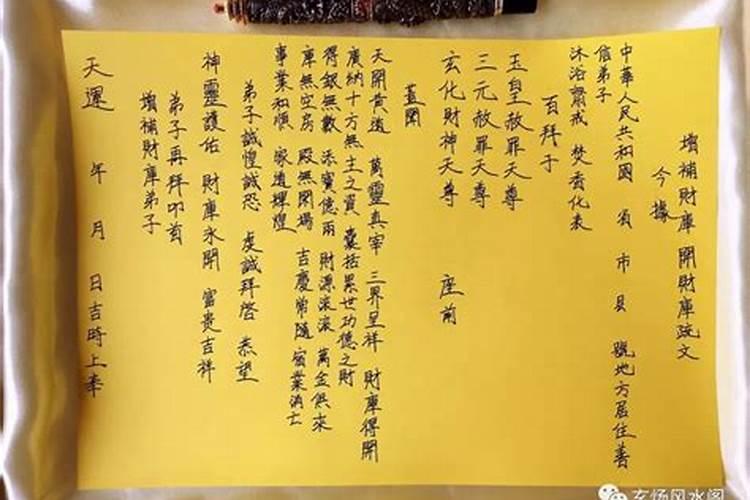 增補財庫 開財庫疏文
今據
中華人民共和國 省 市 县 號地方居住善
信弟子
沐浴齋戒 焚香化表
百拜于
玉皇赦罪天尊
三元赦罪天尊
玄化財神天尊 座前
蓋聞
天開黄道 萬靈真宰 三界呈祥 財庫得開
廣納十方無主之資 囊括累世功德之財
得銀無數 添寶億兩 財源滚滚 萬金俱來
庫無空房 殿無閑場 吉慶常隨 宿業消亡
事業和順 家道輝煌
弟子誠惶誠恐 虔誠拜啓 恭望
神靈護佑 財庫永開 富貴吉祥
弟子再拜叩首
增補財庫弟子
天運 年 月 日吉時上奉
玄扬风水阁